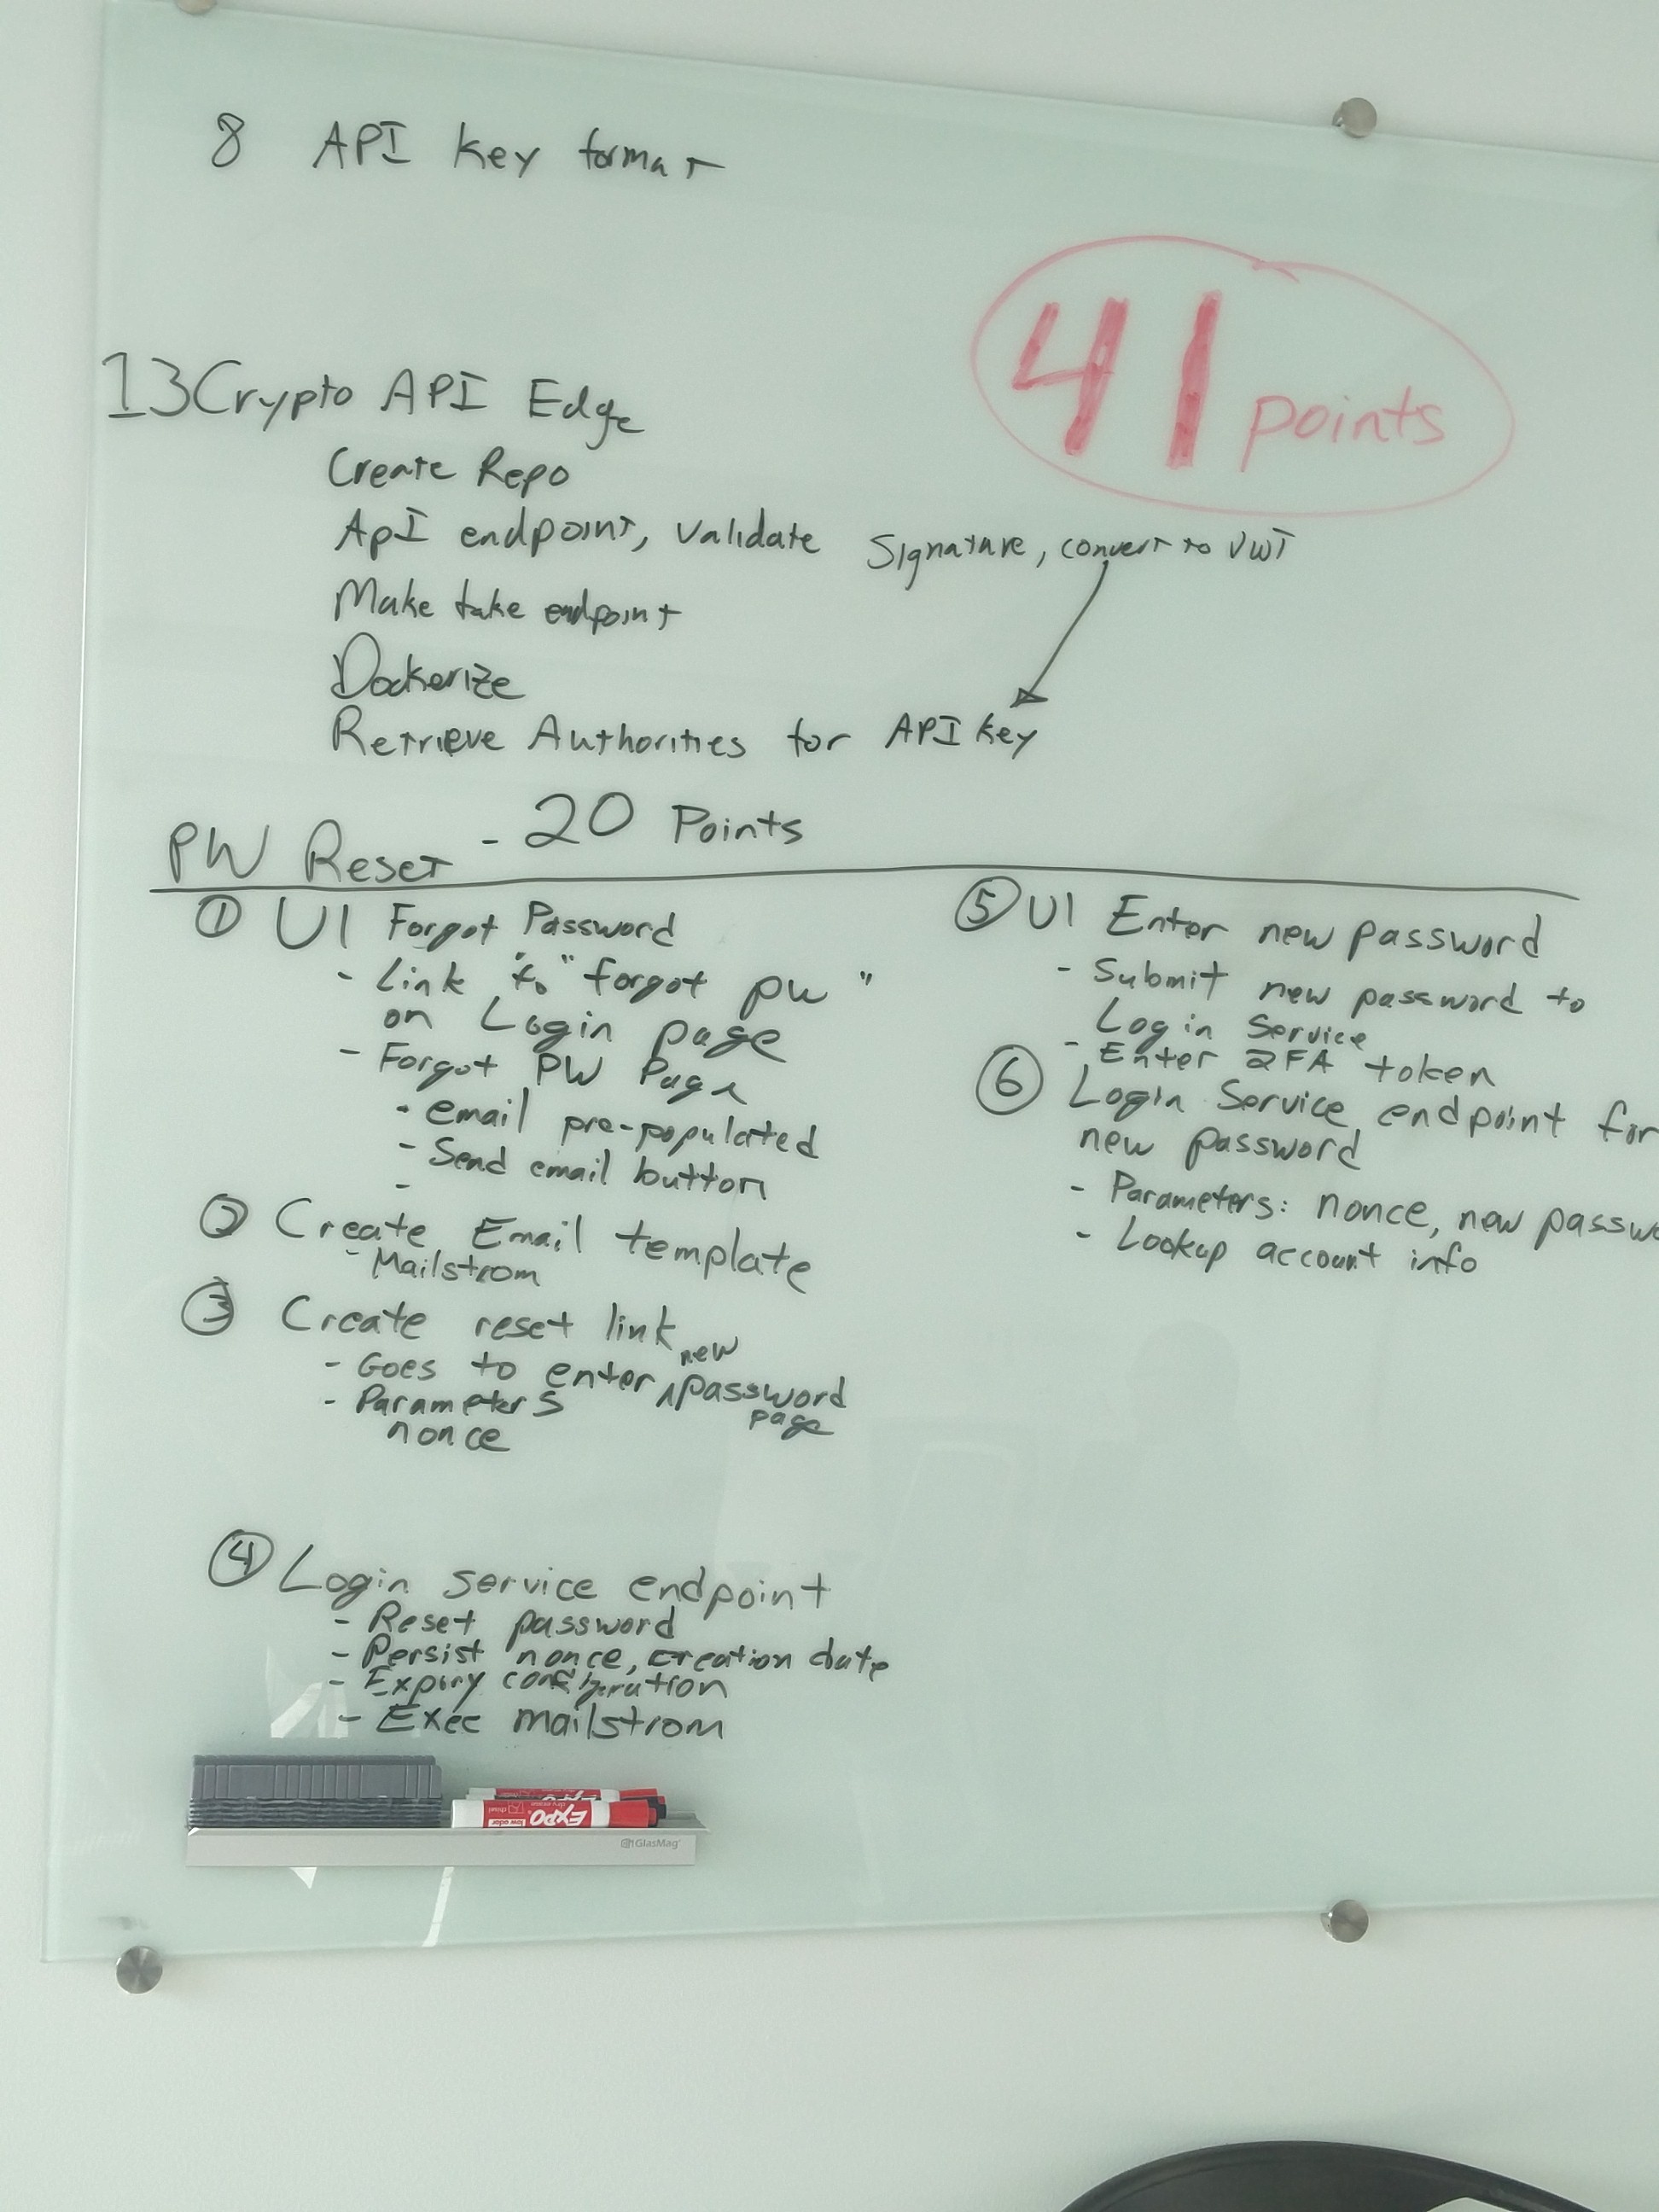 8 API Key format
41 points
13 Crypto API Edge
Create Repo
ApI endpoint, validate Signature, convert to JWT
Make take endpoint
Dockerize
Retrieve Authorities for API Key
PW Reset - 20 Points
① UI Forgot Password
- Link to "forgot pw"
on Login page
- Forgot PW Page
- email pre-populated
- Send email button
-
② Create Email template
- Mailstrom
③ Create reset link
- Goes to enter new password
page
- Parameters
nonce
④ Login service endpoint
- Reset password
- Persist nonce, creation date
- Expiry configuration
- Exec mailstrom
⑤ UI Enter new password
- Submit new password to
Login Service
- Enter 2FA token
⑥ Login Service endpoint for
new password
- Parameters: nonce, new passwo
- Lookup account info
EXPO
low odor
GlasMag